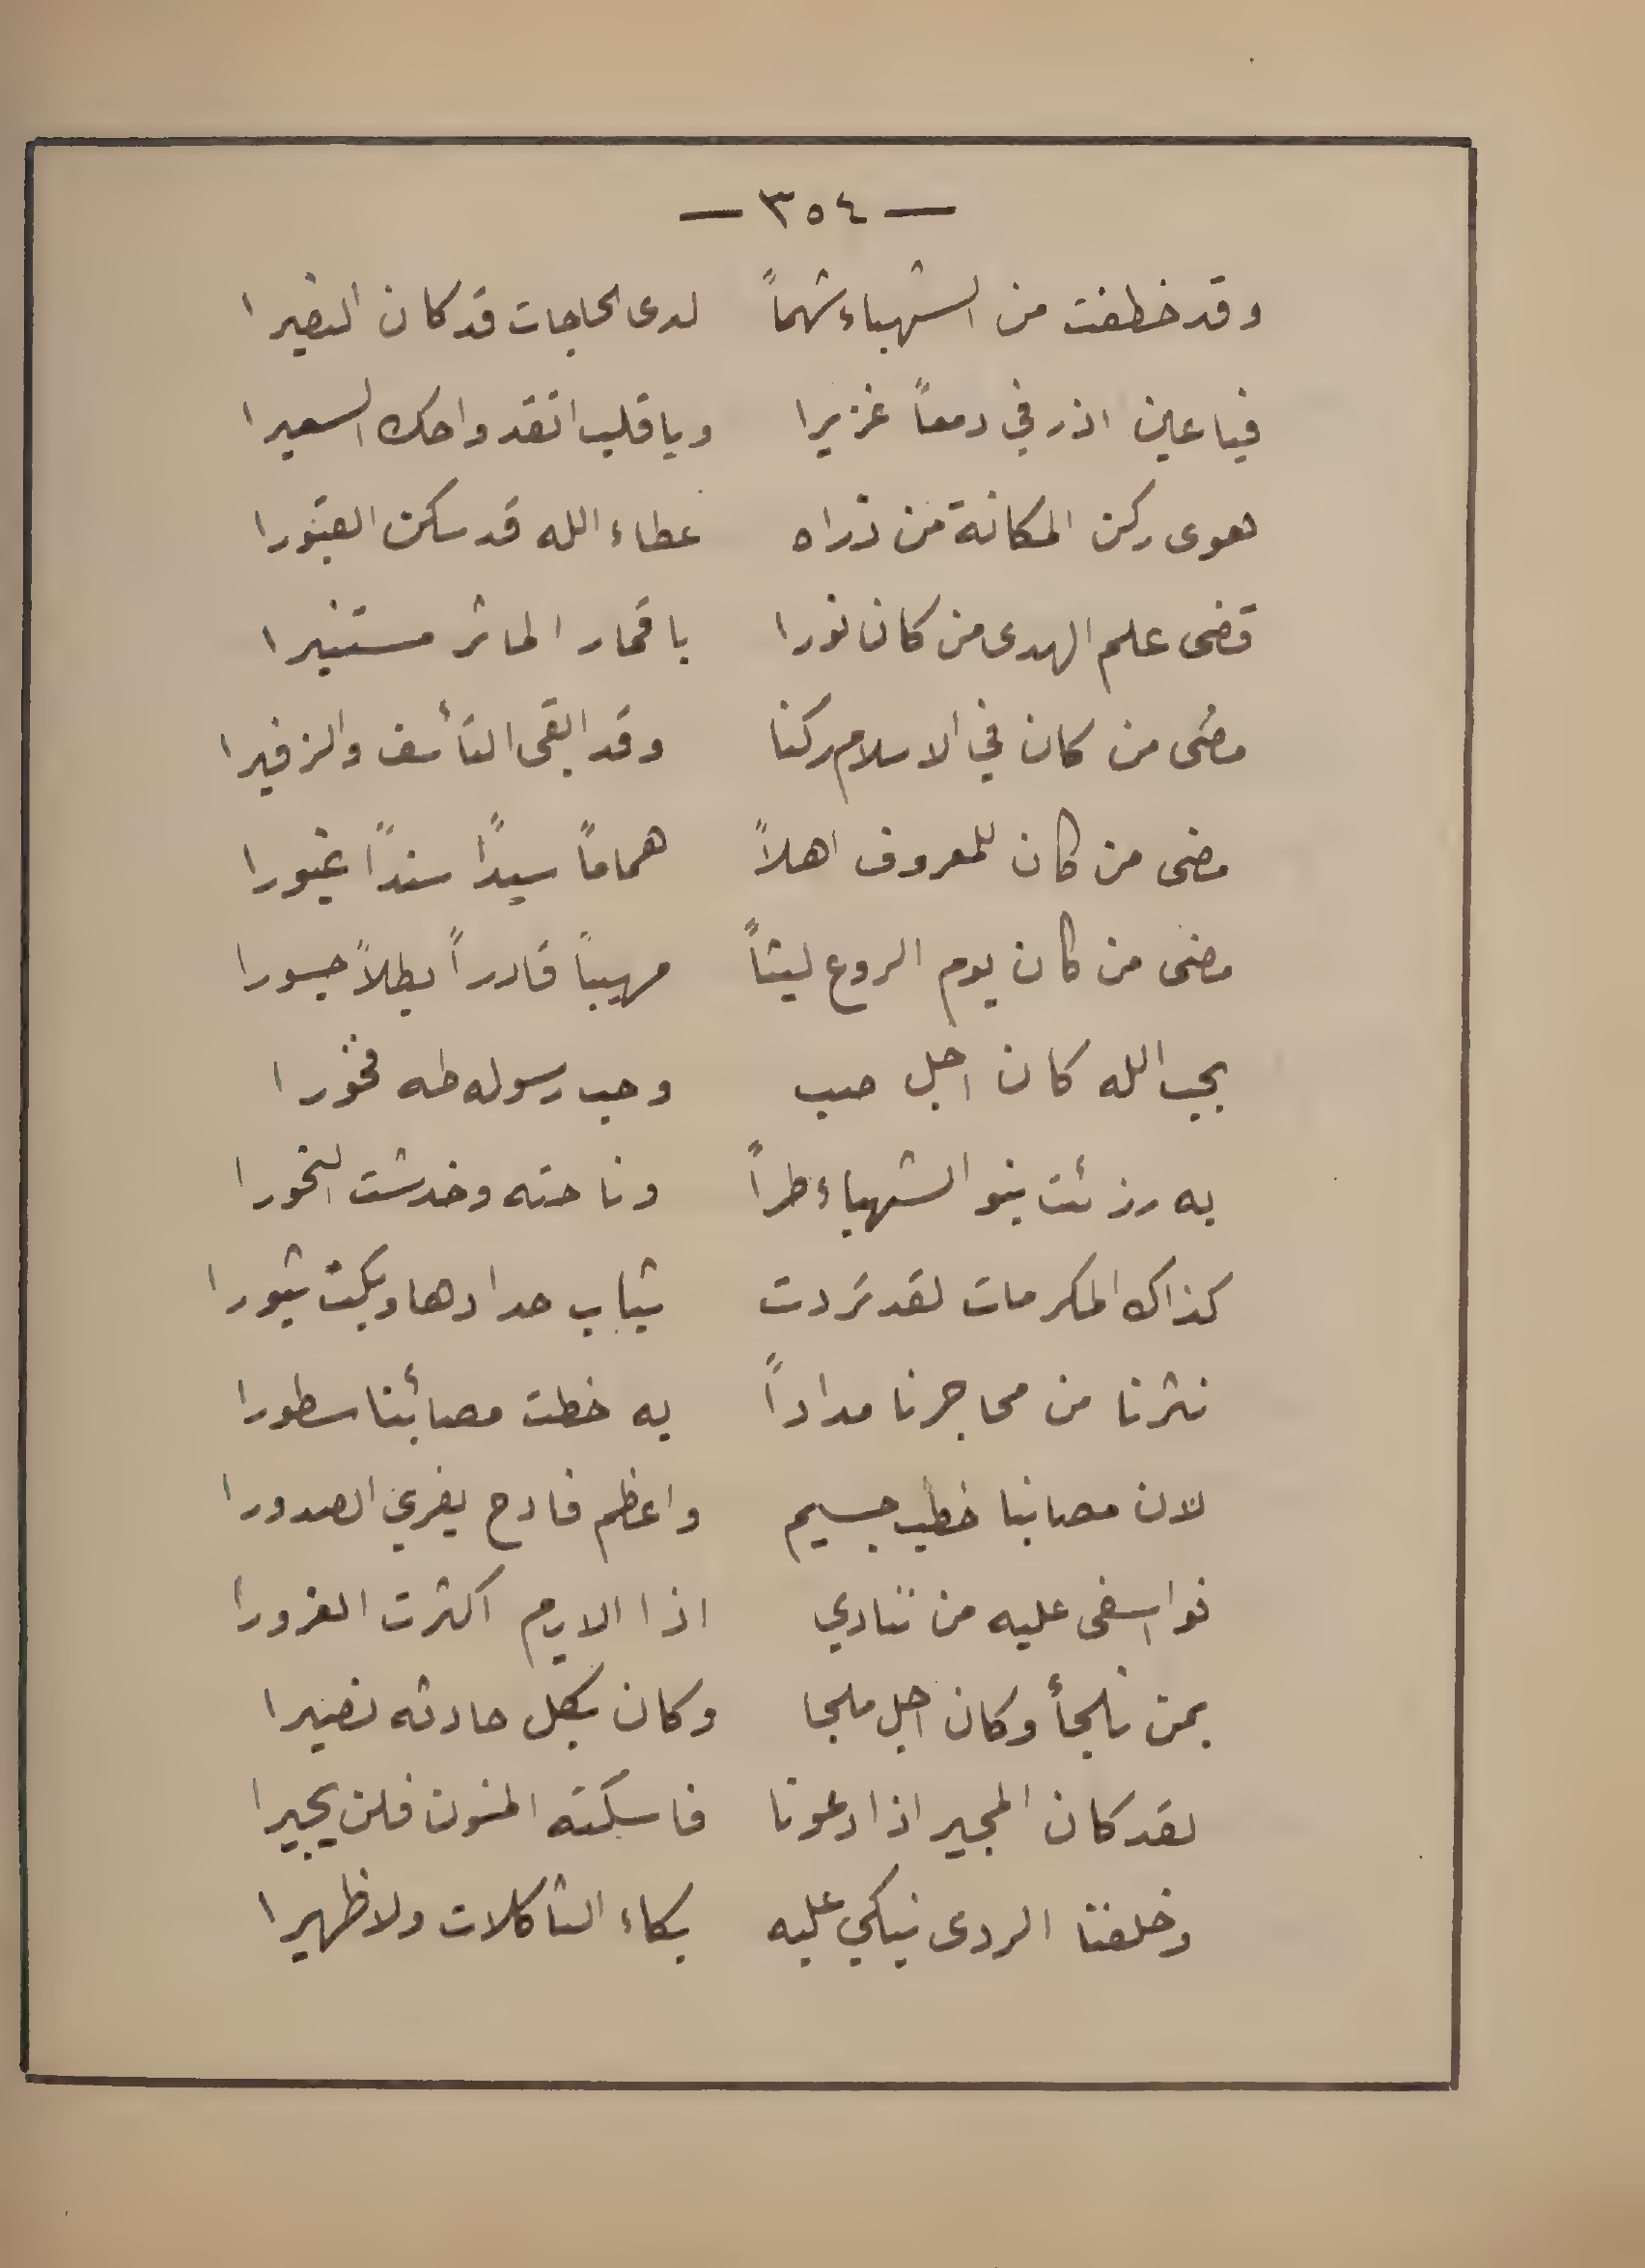 — ٣٥٤ —
وقد خطفت من الشهباء شهماً لدى الحاجات قد كان النصيرا
فيا عين اذرفي دمعاً غزيرا ويا قلب اتقد واحك السعيرا
هوى ركن المكانة من ذراه عطاء الله قد سكن القبورا
قضى علم الهدى من كان نورا باقمار الماثر مستنيرا
مضى من كان في الاسلام ركنا وقد ابقى التأسف والزفيرا
مضى من كان للمعروف اهلاً هماماً سيداً سنداً غيورا
مضى من كان يوم الروع ليثاً مهيباً قادراً بطلاً جسورا
بحب الله كان اجل صب وحب رسوله طه فخورا
به رزئت بنو الشهباء طراً وناحته وخدشت النحورا
كذاك المكرمات لقد تردت ثياب حدادها وبكت ثبورا
نثرنا من محاجرنا مداداً به خطت مصائبنا سطورا
لان مصابنا خطب جسيم واعظم فادح يفري الصدورا
فوا اسفى عليه من ننادي اذا الايام اكثرت الغرورا
بمن نلجأ وكان اجل ملجا وكان بكل حادثه نصيرا
لقد كان المجير اذا دعونا فاسكته المنون فلن يجيرا
وخلفنا الردى نبكي عليه بكاء الثاكلات ولا ظهيرا